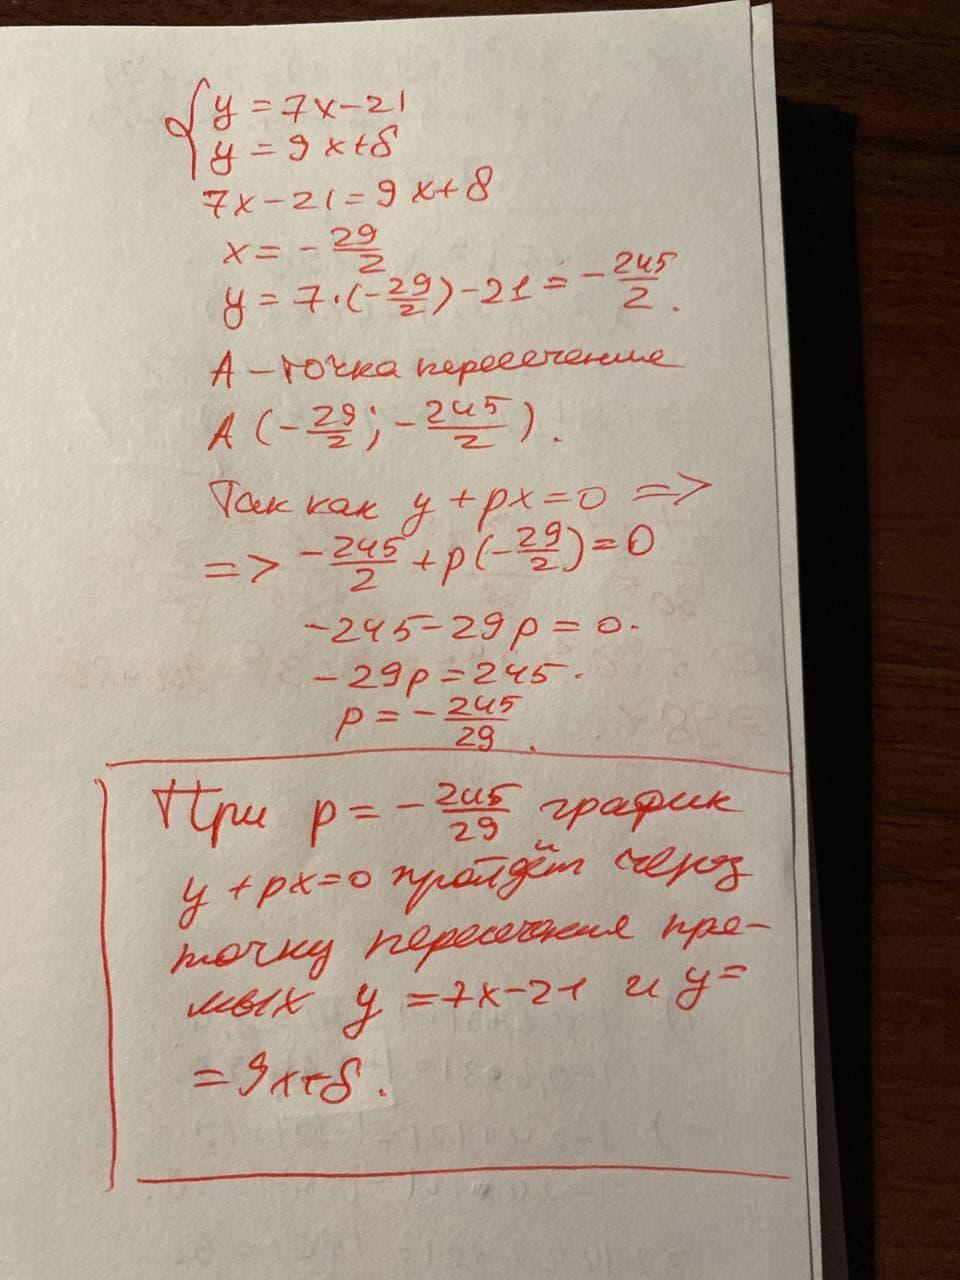 { y = 7x - 21
y = 9x + 8
7x - 21 = 9x + 8
x = - 29/2
y = 7 · (- 29/2) - 21 = - 245/2 .
A - точка пересечение
A (- 29/2 ; - 245/2) .
Так как y + px = 0 =>
=> - 245/2 + p(- 29/2) = 0
-245 - 29p = 0.
-29p = 245.
p = - 245/29 .
При p = - 245/29 график
y + px = 0 пройдёт через
точку пересечения пре-
мых y = 7x - 21 и y =
= 9x + 8 .